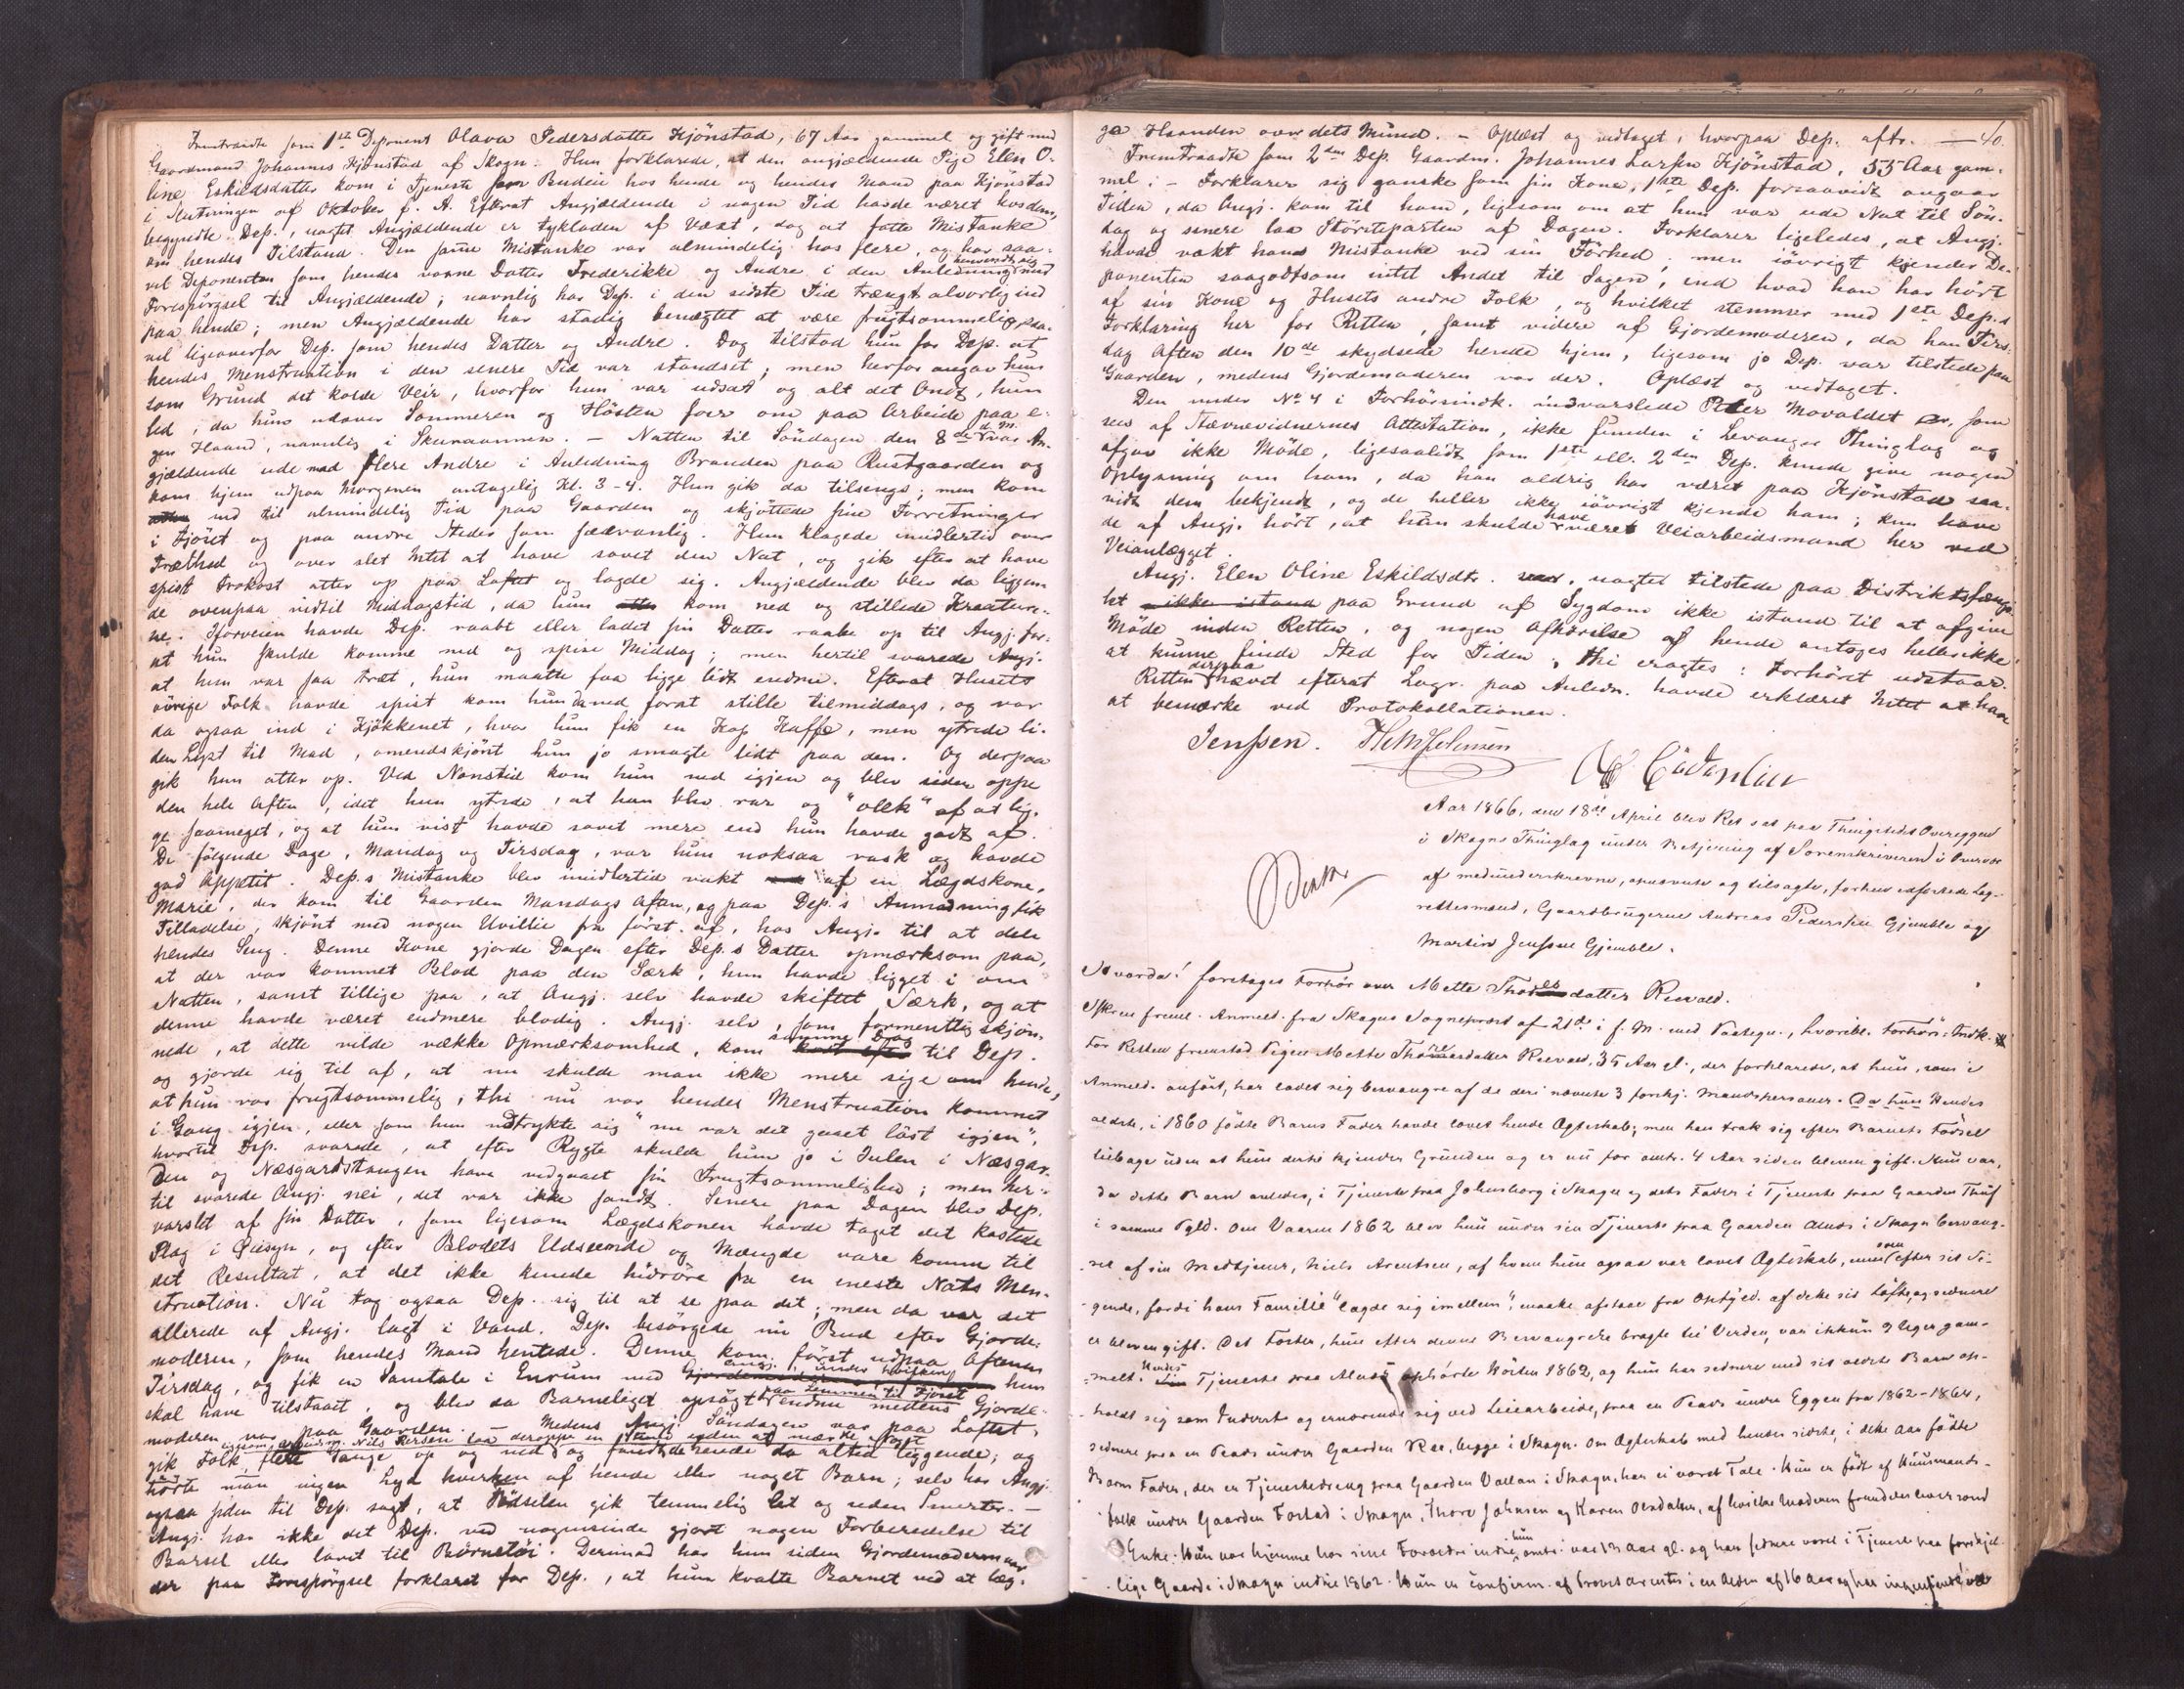 Fremtraadte som 1ste Deponent Olava Pedersdatter Kjönstad, 67 Aar gammel og gift med
Gaardmand Johannes Kjönstad af Skogn. Hun forklarede, at den angjældende Pige Elen O-
line Eskildsdatter kom i Tjeneste som Budeie hos hende og hendes Mand paa Kjönstad
i Slutningen af Oktober f. A. Efterat Angjældende i nogen Tid havde været hos dem,
begyndte Dep., uagtet Angjældende er tykladen af Væxt, dog at fatte Mistanke
om hendes Tilstand. Den samme Mistanke var almindelig hos flere, og har saa-
vel Deponenten som hendes voxne Datter Frederikke og Andre i den Anledning henvendt sig med
Forespörgsel til Angjældende; navnlig har Dep. i den sidste Tid trængt alvorlig ind
paa hende; men Angjældende har stadig benægtet at være frugtsommelig saa-
vel ligeoverfor Dep. som hendes Datter og Andre. Dog tilstod hun for Dep. at
hendes Menstruation i den senere Tid var standset; men herfor angav hun
som Grund det kolde Veir, hvorfor hun var udsat og alt det Ondt, hun
led, da hun udover Sommeren og Hösten foer om paa Arbeide paa e-
gen Haand, navnlig i Skuraannen. – Natten til Söndagen den 8de d. M. var An-
gjældende ude med flere Andre i Anledning Branden paa Rustgaarden og
kom hjem udpaa Morgenen antagelig Kl. 3-4. Hun gik da tilsengs; men kom
ned til almindelig Tid paa Gaarden og skjöttede sine Forretninger
i Fjöset og paa andre Steder som sædvanlig. Hun klagede imidlertid over
Træthed og over slet Intet at have sovet den Nat, og gik efter at have
spist Frokost atter op paa Loftet og lagde sig. Angjældende blev da liggen-
de ovenpaa indtil Middagstid, da hun kom ned og stillede Kreature-
ne. Iforveien havde Dep. raabt eller ladet sin Datter raabe op til Angj. for-
at hun skulde komme ned og spise Middag; men hertil svarede Angj.
at hun var saa træt, hun maatte faa ligge lidt endnu. Efterat Husets
övrige Folk havde spist kom hun da ned forat stille tilmiddags, og var
da ogsaa ind i Kjökkenet, hvor hun fik en Kop Kaffe, men ytrede li-
den Lyst til Mad, omendskjönt hun jo smagte lidt paa den. Og derpaa
gik hun atter op. Ved Nonstid kom hun ned igjen og blev siden oppe
den hele Aften, idet hun ytrede, at hun blev var og "veik" af at lig-
ge saameget, og at hun vist havde sovet mere end hun havde godt af.
De fölgende Dage, Mandag og Tirsdag, var hun noksaa rask og havde
god Appetit. Dep.s Mistanke blev imidlertid vakt af en Lægdskone,
Marie, der kom til Gaarden Mandags Aften, og paa Dep.s Anmodning fik
Tilladelse, skjönt med nogen Uvillie fra först af, hos Angj. til at dele
hendes Seng. Denne Kone gjorde Dagen efter Dep.s Datter opmærksom paa,
at der var kommet Blod paa den Særk, hun havde ligget i om
Natten, samt tillige paa, at Angj. selv havde skiftet Særk, og at
denne havde været endmere blodig. Angj. selv, som formentlig skjön-
nede, at dette vilde vække Opmærksomhed, kom samme Dag til Dep.
og gjorde sig til af, at nu skulde man ikke mere sige om hende,
at hun var frugtsommelig, thi nu var hendes Menstruation kommet
i Gang igjen, eller som hun udtrykte sig "nu var det gaaet löst igjen";
hvortil Dep. svarede, at efter Rygte skulde hun jo i Julen i Næsgar-
den og Næsgardstangen have vedgaaet sin Frugtsommelighed; men her-
til svarede Angj. nei, det var ikke sandt. Senere paa Dagen blev Dep.
varslet af sin Datter, som ligesom Lægdskonen havde taget det kastede
Plag i Öiesyn, og efter Blodets Udseende og Mængde vare komne til
det Resultat, at det ikke kunde hidröre fra en eneste Nats Men-
struation. Nu tog ogsaa Dep. sig til at se paa det; men da var det
allerede af Angj. lagt i Vand. Dep. besörgede nu Bud efter Gjorde-
moderen, som hendes Mand hentede. Denne kom först udpaa Aftenen
Tirsdag, og fik en Samtale i Enrum med Angj., under hvilken hun
skal have tilstaaet, og blev da Barneliget opsögt paa Lemmen til Fjöset endnu medens Gjorde-
moderen var paa Gaarden. – Medens Angj. Söndagen var paa Loftet,
ligesom Nils Iversen laa deroppe en Stund uden at mærke Noget
gik Folk flere Gange op og ned og fandt derinde da altid liggende; og
hörte man ingen Lyd hverken af hende eller noget Barn; selv har Angj.
ogsaa siden til Dep. sagt, at Födselen gik temmelig let og uden Smerter. –
Angj. har ikke det Dep. ved nogensinde gjort nogen Forberedelse til
Barsel eller lavet til Börnetöi. Derimod har hun siden Gjordemoderen var
der paa Forespörgsel forklaret for Dep., at hun kvalte Barnet ved at læg-
40.
ge Haanden over dets Mund. – Oplæst og vedtaget, hvorpaa Dep. aftr. –
Fremtraadte som 2den Dep. Gaardm. Johannes Larsen Kjönstad, 55 Aar gam-
mel. – Forklarer sig ganske som sin Kone, 1ste Dep. forsaavidt angaar
Tiden, da Angj. kom til ham, ligesom om at hun var ude Nat til Sön-
dag og senere laa Störsteparten af Dagen. Forklarer ligeledes, at Angj.
havde vakt hans Mistanke ved sin Förhed; men iövrigt kjender De-
ponenten saagodtsom intet Andet til Sagen, end hvad han har hört
af sin Kone og Husets andre Folk, og hvilket stemmer med 1ste Dep.s
Forklaring her for Retten, samt videre af Gjordemoderen, da han Tirs-
dag Aften den 10de skydsede hende hjem, ligesom jo Dep. var tilstede paa
Gaarden, medens Gjordemoderen var der. Oplæst og vedtaget.
Den under No 4 i Forhörsindk. indvarslede Peter Movaldet er, som
sees af Stævnevidnernes Attestation, ikke funden i Levanger Thinglag og
afgav ikke Möde, ligesaalidt som 1ste ell. 2den Dep. kunde give nogen
Oplysning om ham, da han aldrig har været paa Kjönstad saa-
vidt dem bekjendt, og de heller ikke iövrigt kjende ham; kun have
de af Angj. hört, at han skulde have været Veiarbeidsmand her ved
Veianlægget.
Angj. Elen Oline Eskildsdtr. var, uagtet tilstede paa Distriktsfængs-
let paa Grund af Sygdom ikke istand til at afgive
Möde inden Retten, og nogen Afhörelse af hende antoges heller ikke
at kunne finde Sted for Tiden, thi eragtes: Forhöret udstaar.
Retten derpaa hævet efterat Lagr. paa Anledn. havde erklæret Intet at have
at bemærke ved Protokollationen.
Jenssen.
Aar 1866, den 18de April blev Ret sat paa Thingstedet Overeggen
i Skogns Thinglag under Betjening af Sorenskriveren i Overvær
af medunderskrevne, opnævnte og tilsagte, forhen edfæstede Lag-
rettesmænd, Gaardbrugerne Andreas Pedersen Gjemble og
Martin Jenssen Gjemble.
Hvorda! foretages Forhör over Mette Thoresdatter Reevald.
Skrm freml. Anmeld. fra Skogns Sognepræst af 21de i f. M. med Paategn., hvoribl. Forhörs-Indk.
For Retten fremstod Pigen Mette Thoresdatter Reevald, 35 Aar gl., der forklarede, at hun, som i
Anmeld. anfört, har ladet sig besvangre af de deri nævnte 3 forskj. Mandspersoner. Hendes
ældste, i 1860 födte Barns Fader havde lovet hende Ægteskab; men han trak sig efter Barnets Födsel
tilbage uden at hun dertil kjender Grunden og er nu for omtr. 4 Aar siden bleven gift. Hun var,
da dette Barn avledes, i Tjeneste paa Johnsborg i Skogn og dets Fader i Tjeneste paa Gaarden Thuf
i samme Pgld. Om Vaaren 1862 blev hun under sin Tjeneste paa Gaarden Alnes i Skogn besvang-
ret af sin Medtjener, Niels Arentsen, af hvem hun ogsaa var lovet Ægteskab, men som efter sit Si-
gende, fordi hans Familie "lagde sig imellem", maatte afstaae fra Opfyld. af dette sit Löfte, og sednere
er bleven gift. Det Foster, hun efter denne Besvangrelse bragte til Verden, var ikkun 9 Uger gam-
melt. Hendes Tjeneste paa Alnes ophörte Hösten 1862, og hun har sednere med sit ældste Barn op-
holdt sig som Inderst og ernærende sig ved Leiearbeide, paa en Plads under Eggen fra 1862-1864,
sednere paa en Plads under Gaarden Ree, begge i Skogn. Om Ægteskab med hendes sidste, i dette Aar födte
Barns Fader, der er Tjenestedreng paa Gaarden Vollan i Skogn, har ei været Tale. Hun er födt af Huusmands-
folk under Gaarden Forstad i Skogn, Thore Johnsen og Karen Olsdatter, af hvilke Moderen fremdeles lever som
Enke. Hun var hjemme hos sine Forældre indtil hun omtr. var 13 Aar gl. og har sednere været i Tjeneste paa forskjel-
lige Gaarde i Skogn indtil 1862. Hun er confirm. af Provst Arentz i en Alder af 16 Aar og har ingensinde været